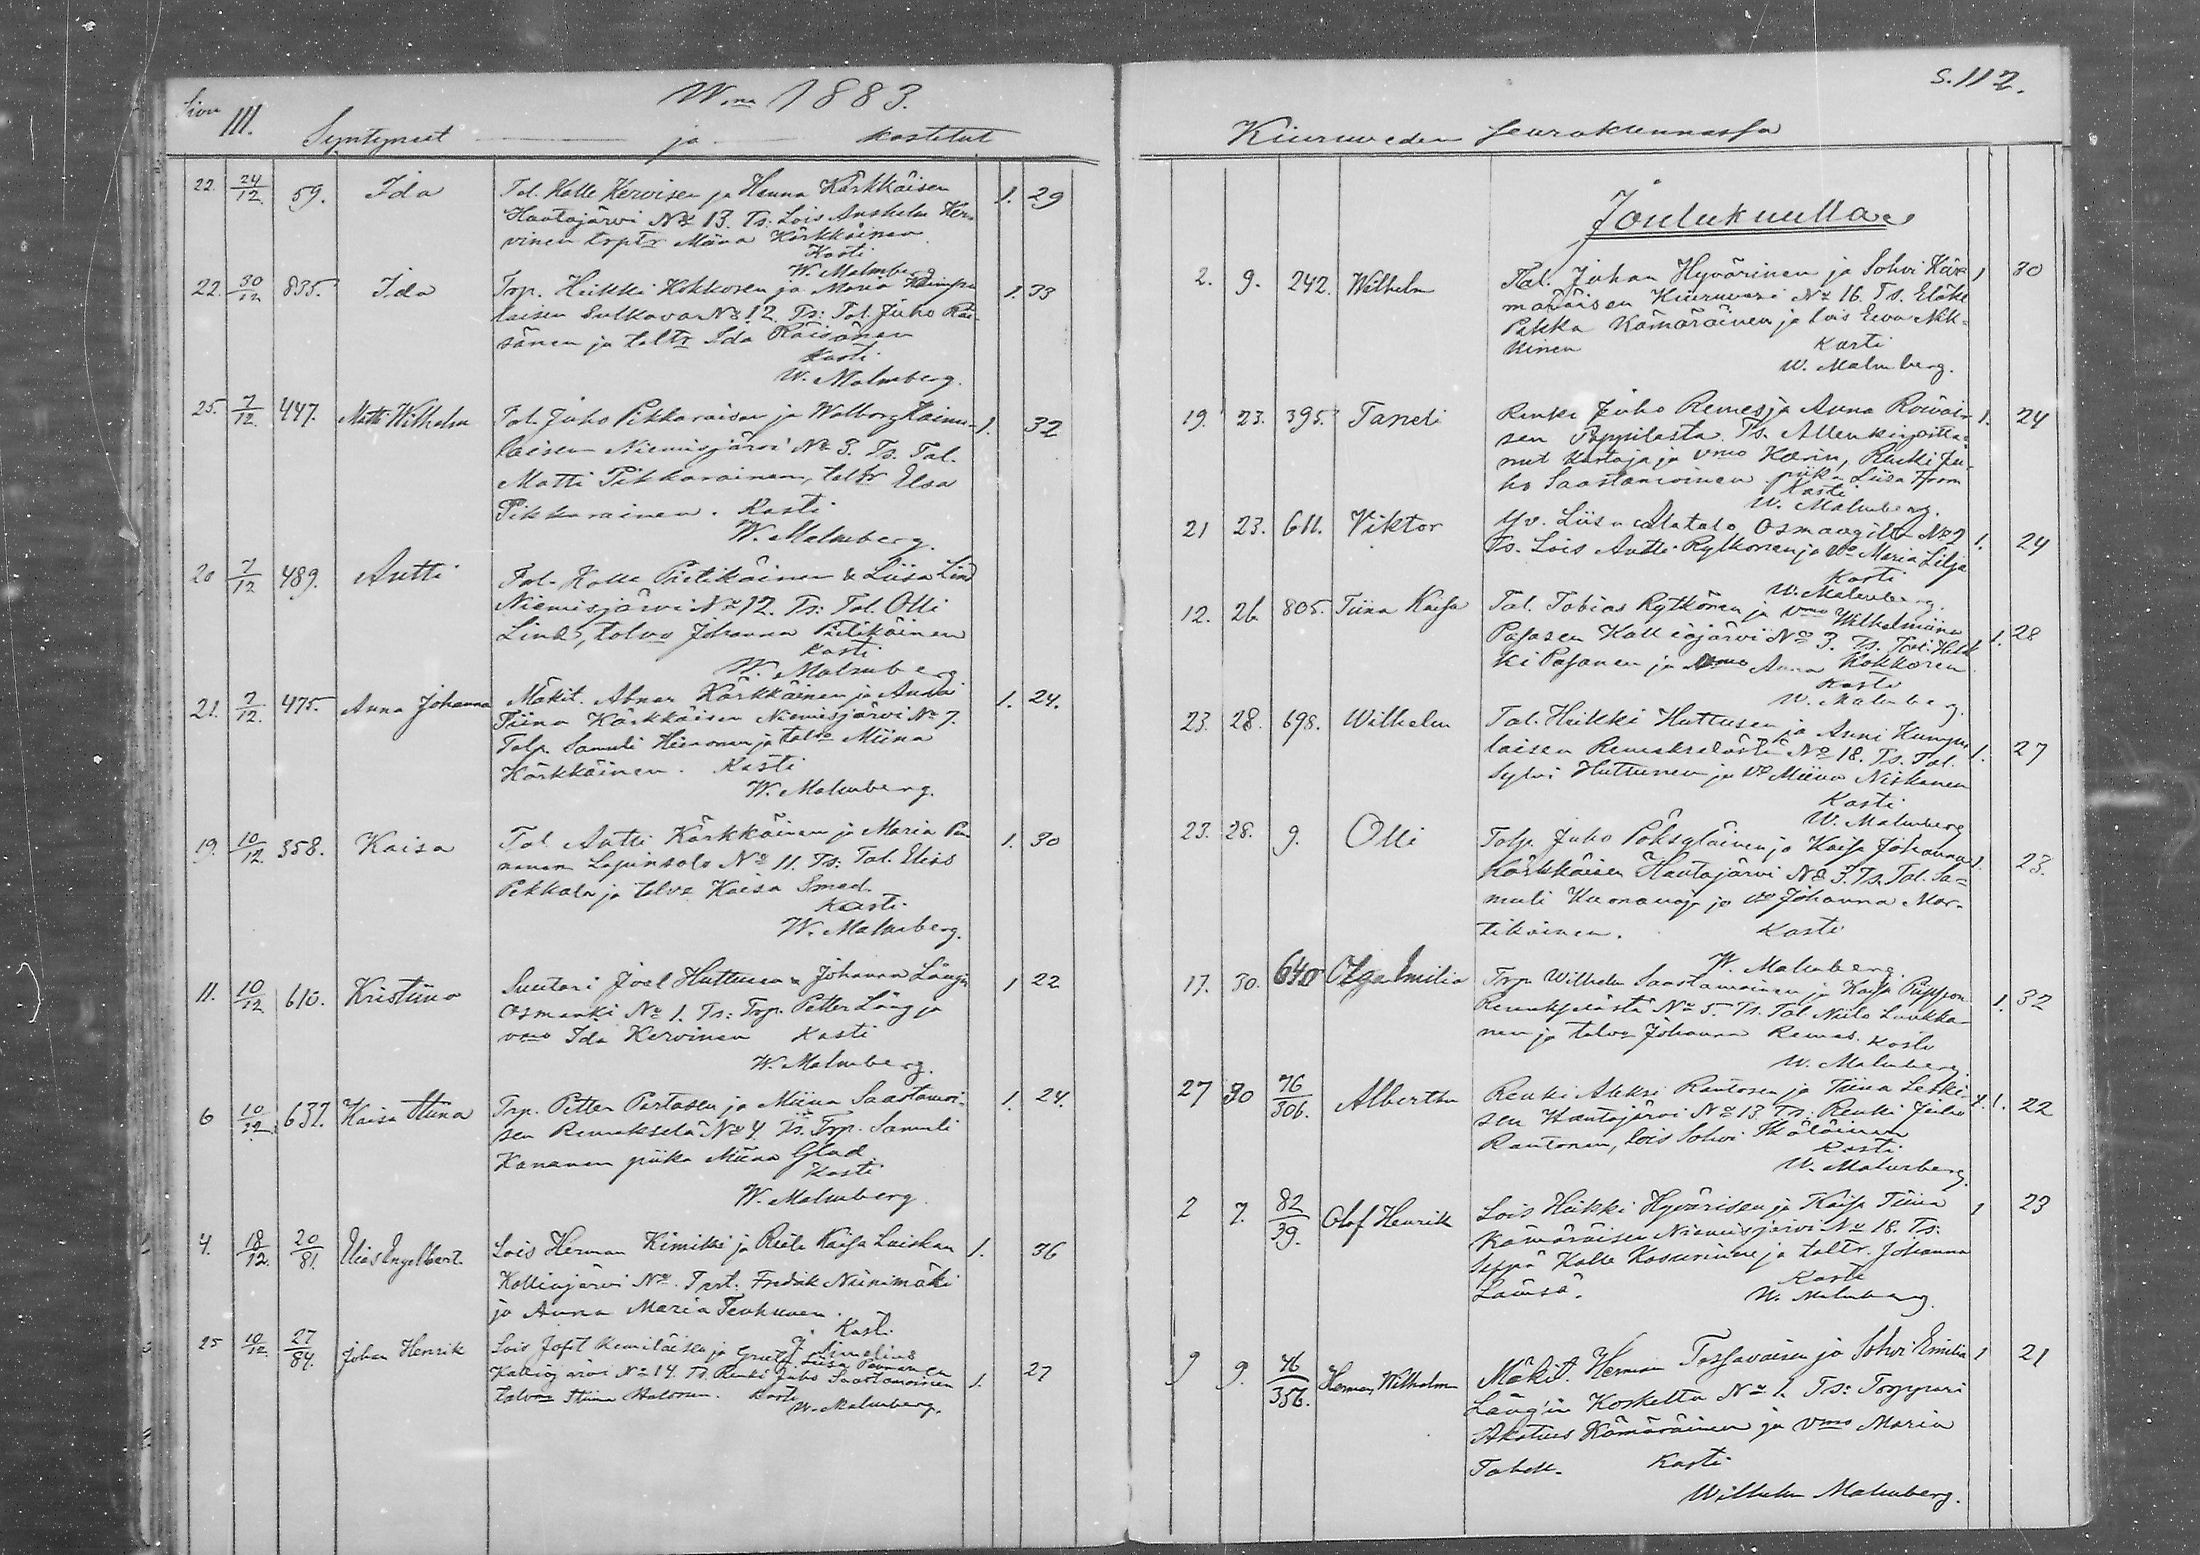 Sivu 111.
Wna 1883.
Syntyneet ja kastetut
22. 24/12 59. Ida Tal. Kalle Kervisen ja Hanna Kärkkäisen 1. 29
Hautajärvi No 13. Ts. Lois Anshelm Ker-
vinen trptr Miina Kärkkäinen
Kasti
W. Malmberg
22. 30/12 835. Ida Trp. Heikki Kokkosen ja Maria Kumpu- 1. 33
laisen Sulkava No 12. Ts: Tal. Juho Räi-
sänen ja taltr Ida Räisänen
Kasti
W. Malmberg.
25. 7/12 447. Matti Wilhelm Tal. Juho Pikkaraisen ja Walborg Kainu- 1. 32
laisen Niemisjärvi No 3. Ts. Tal.
Matti Pikkarainen, taltr Elsa
Pikkarainen. Kasti
W. Malmberg.
20 7/12 489. Antti Tal. Kalle Pietikäinen & Liisa Lind
Niemisjärvi No 12. Ts: Tal. Olli
Lind, talvo Johanna Pietikäinen
Kasti
W. Malmberg
21. 7/12. 475. Anna Johanna Mäkit. Abner Kärkkäinen ja Anna 1. 24.
Tiina Kärkkäisen Niemisjärvi No 7.
Talp. Samuli Hiironen ja talvo Miina
Kärkkäinen. Kasti
W. Malmberg.
19. 10/12 358. Kaisa Tal Antti Kärkkäinen ja Maria Pen 1. 30
nanen Lapinsalo No 11. Ts: Tal. Elias
Pekkala ja talvo Kaisa Smed.
Kasti
W. Malmberg.
11. 10/12 610. Kristiina Suutari Joel Huttunen & Johanna Lång'in 1 22
Osmanki No 1. Ts: Trp. Petter Lång ja
vmo Ida Kervinen Kasti
W. Malmberg.
6 10/12 637. Kaisa Stiina Trp. Petter Partasen ja Miina Saastamoi- 1. 24.
sen Remekselä No 4. Ts. Trp. Samuli
Kananen piika Miina Glad
Kasti
W. Malmberg.
4. 18/12. 20/81. Elias Engelbert Lois Herman Kimikki ja Reeta Kaisa Laiskan 1. 36
Kalliojärvi No. Tprt. Fredrik Niinimäki
ja Anna Maria Tenhunen.
Kasti
J. Simelius
25 10/12 27/84. Johan Henrik Lois Josef Kumiläisen ja Greta Liisa Ponnanen
Kalliojärvi No 14. Ts. Renki Juho Saastamoinen 1. 27
talvmo Stiina Halonen. Kasti
W. Malmberg.
s. 112.
Kiuruweden seurakunnassa
Joulukuulla
2. 9. 242. Wilhelm Tal. Juhan Hyvärinen ja Sohvi Kär 1 30
märäisen Kiuruvesi No 16. Ts. Eläkl
Pekka Kämäräinen ja lois Eeva
Kasti
W. Malmberg.
19. 23. 395. Taneli Renki Juho Remes ja Anna Roivai- 1. 24
sen Ts. Allenkirjoitta-
nut kastaja ja vmo Karin, Renki Ju-
ho Saastamoinen piika Liisa From
Kasti
W. Malmberg.
21 23. 611. Viktor Yv. Liisa Alatalo Osmangilta No 2 1. 24
Ts. Lois Antti Rytkönen ja vo Maria Lilja
Kasti
W. Malmberg.
12. 26. 805. Tiina Kaisa Tal. Tobias Rytkönen ja vmo Wilhelmiina
Pasasen Kalliojärvi No 3. Ts. Tal. Heik 1. 28
ki Pasanen ja vmo Anna Kokkonen
Kasti
W. Malmberg.
23. 28. 698. Wilhelm Tal. Heikki Huttusen ja Anni Kumpu
laisen Remekselästä No 18. Ts. Tal. 1. 27
Sylvi Huttunen ja vo Miina Niskanen
Kasti
W. Malmberg
23. 28. 9. Olli Talp. Juho Pöksyläinen ja Kaisa Johanna 1. 23.
Kärkkäisen Hautajärvi No 3. Ts. Tal. Sa=
muli Kuonanoja ja vo Johanna Mar-
tikainen. Kasti
W. Malmberg.
17. 30. 640 Olga Emilia Trp. Wilhelm Saastamoinen ja Kaisa Pappon
Remekselästä No 5. Ts. Tal. Niilo Luukko- 1. 32
nen ja talvo Johanna Remes. Kasti
W. Malmberg.
27 30 76/306. Albertti Renki Aleksi Rautosen ja Tiina Leski- 1. 22
sen Hautajärvi No 13 Ts: Renki Juho
Rautonen, lois Sohvi
Kasti
W. Malmberg.
2 7. 82/39. Olof Henrik Lois Heikki Hyvärisen ja Kaisa Tiina 1 23
Kämäräisen Niemisjärvi No 18. Ts:
Seppä Kalle Kosunine ja taltr. Johanna
Lämsä. Kasti
W. Malmberg.
9 9. 76/356. Herman Wilhelm Mäkit. Herman Tossavaisen ja Sohvi Emilia 1 21
Lång'in Koskelta No 1. Ts: Torppari
Akatius Kämäräinen ja vmo Maria
Tabell. Kasti
Wilhelm Malmberg.